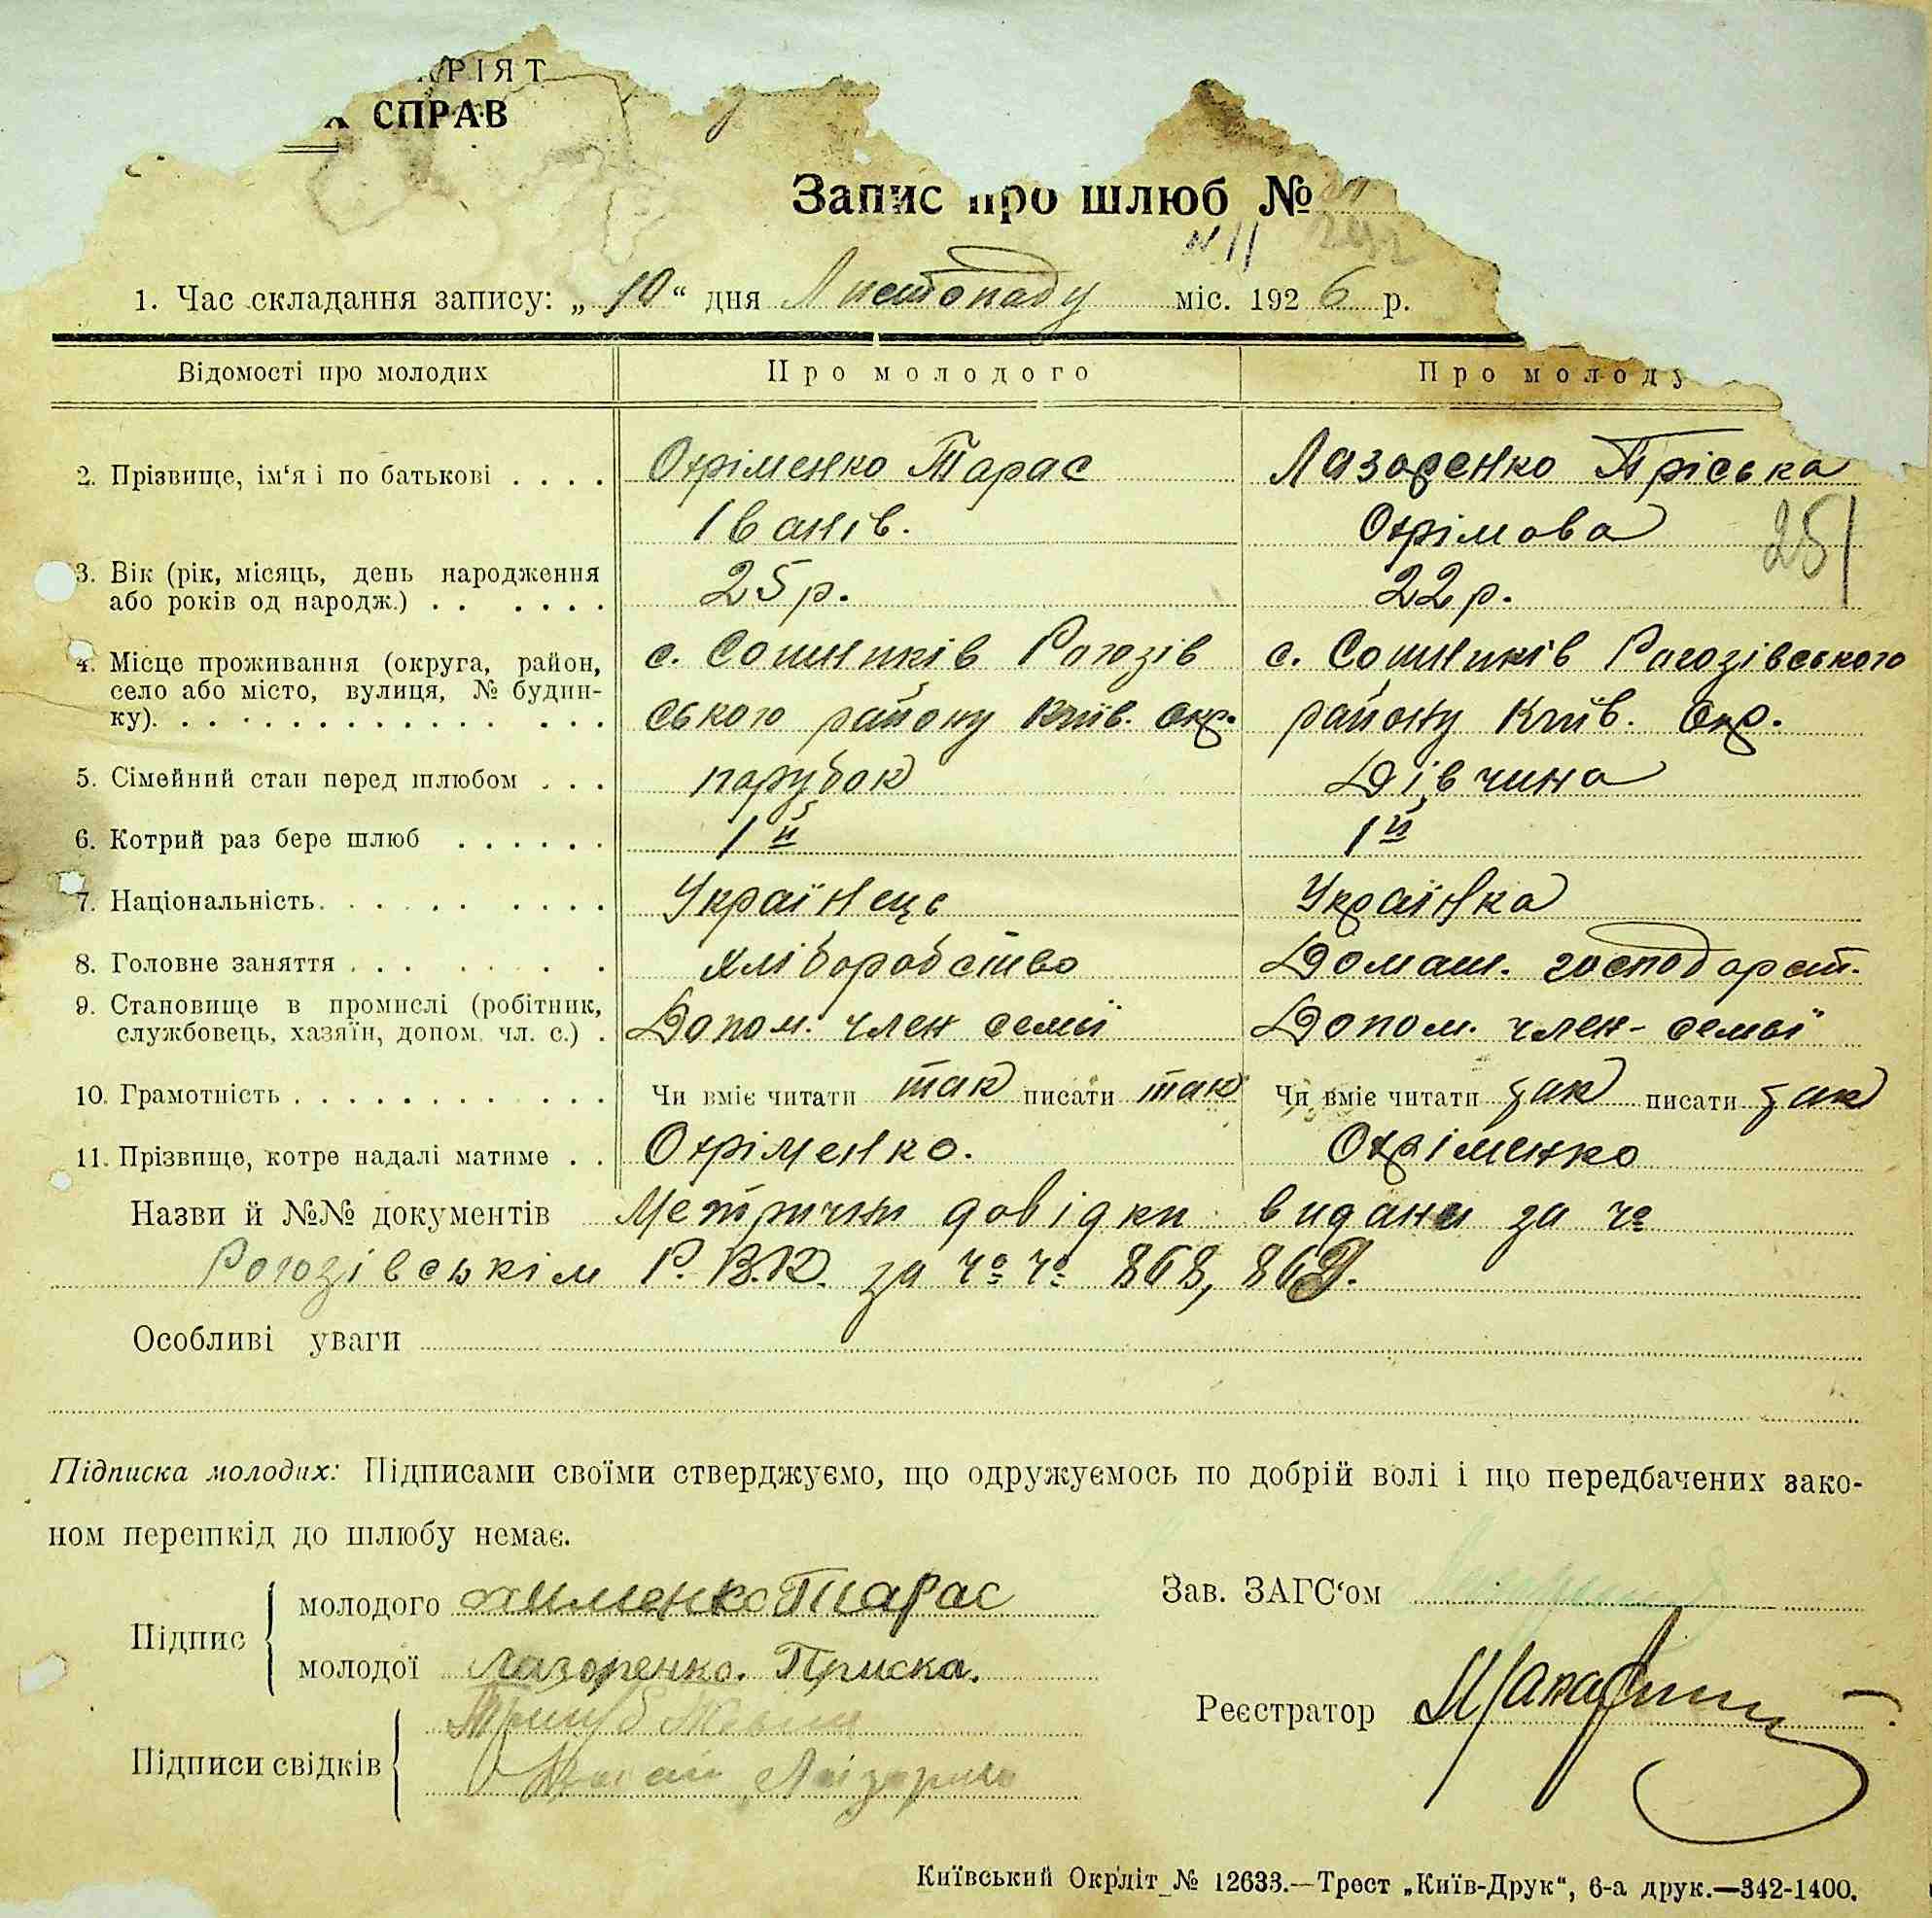 РІЯТ
СПРАВ
Запис про шлюб №
№ 11
1. Час складання запису: „ 10 “ дня Листопаду міс. 192 6 р.
Відомості про молодих Про молодого Про молоду
2. Прізвище, ім‘я і по батькові . . . . Охріменко Тарас Лазоренко Пріська
Іванів. Охрімова
251
3. Вік (рік, місяць, день народження 25 р. 22 р.
або років од народж.) . . . . . .
4. Місце проживання (округа, район, с. Сошників Рогозів с. Сошників Рогозівського
село або місто, вулиця, № будин-
ку). . . . . . . . . . . . . . . ського району Київ. окр. району Київ. Окр.
5. Сімейний стан перед шлюбом . . . парубок Дівчина
6. Котрий раз бере шлюб . . . . . . 1й 1й
7. Національність. . . . . . . . . . Українець Українка
8. Головне заняття . . . . . . . хліборобство Домаш. господарст.
9. Становище в промислі (робітник,
службовець, хазяїн, допом. чл. с.) . Допом. член семьї Допом. член - семьї
10. Грамотність . . . . . . . . . . . Чи вміє читати так писати так Чи вміє читати так писати так
11. Прізвище, котре надалі матиме . . Охріменко. Охріменко
Назви й №№ документів Метрични довідки видани за чо
Рогозівськім Р.В.К. за чо чо 868, 869.
Особливі уваги
Підписка молодих: Підписами своїми стверджуємо, що одружуємось по добрій волі і що передбачених зако-
ном перешкід до шлюбу немає.
Підпис
молодого Тарас
молодої Лазоренко. Приска.
Зав. ЗАГС‘ом
Реєстратор
Підписи свідків
Київський Окрліт № 12633.—Трест „Київ-Друк“, 6-а друк.—342-1400.